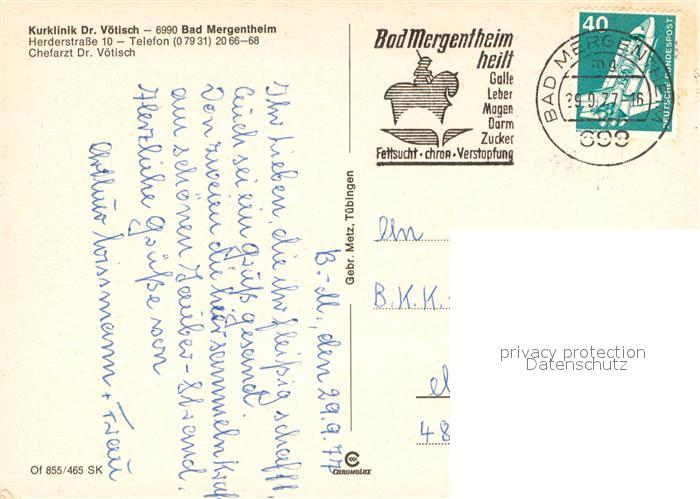 Kurklinik Dr. Vötisch – 6990 Bad Mergentheim
Herderstraße 10 – Telefon (0 79 31) 20 66–68
Chefarzt Dr. Vötisch
Bad Mergentheim
heilt
Galle
Leber
Magen
Darm
Zucker
Fettsucht · chron · Verstopfung
40
DEUTSCHE BUNDESPOST
BAD MERGENTHEIM
mg
29.9.77-16
699
B.-M., den 29.9.77
Ihr Lieben, die ihr fleißig schafft
Euch sei ein Gruß gesand.
Von zweien die hier sammeln Kraft
am schönen Tauber-Strand.
Herzliche Grüße von
Arthur Wissmann + Frau
An
B.K.K.-
48
Gebr. Metz, Tübingen
privacy protection
Datenschutz
Of 855/465 SK
CHROMOLUX